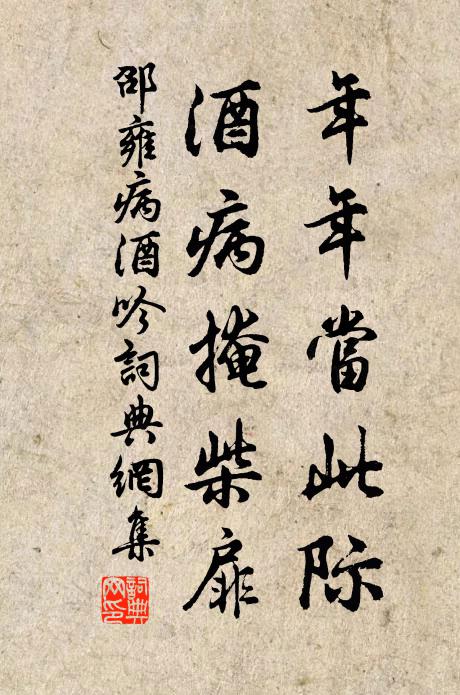 年年當此際
酒病掩柴扉
邵雍病酒吟詞典網集
詞典網印